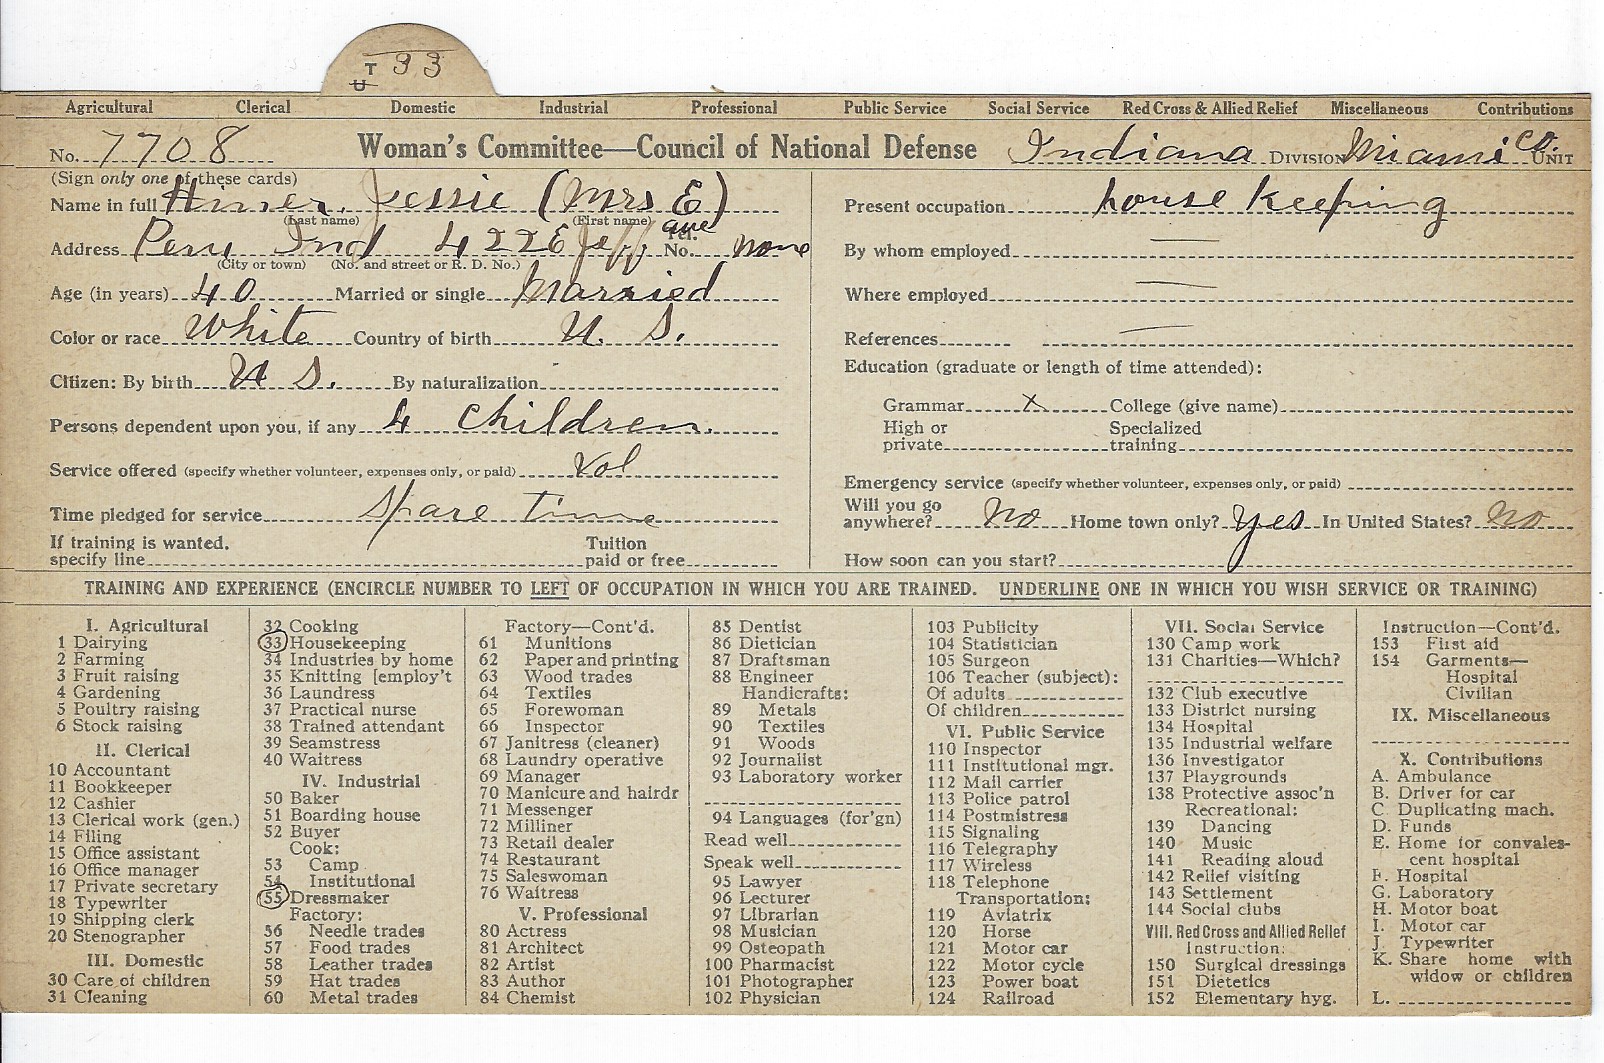 T 33
U
Agricultural Clerical Domestic Industrial Professional Public Service Social Service Red Cross & Allied Relief Miscellaneous Contributions
No. 7708 Woman's Committee—Council of National Defense Indiana DIVISION Miami Co. UNIT
(Sign only one of these cards)
Name in full Hiner, Jessie (Mrs E)
(Last name) (First name)
Address Peru Ind 422 E Jeff ave Tel. No. none
(City or town) (No. and street or R. D. No.)
Age (in years) 40 Married or single Married
Color or race White Country of birth U. S.
Citizen: By birth U S. By naturalization
Persons dependent upon you, if any 4 Children.
Service offered (specify whether volunteer, expenses only, or paid) Vol
Time pledged for service spare time
If training is wanted, specify line Tuition paid or free
Present occupation house keeping
By whom employed —
Where employed —
References —
Education (graduate or length of time attended):
Grammar x College (give name)
High or private Specialized training
Emergency service (specify whether volunteer, expenses only, or paid)
Will you go anywhere? No Home town only? yes In United States? no
How soon can you start?
TRAINING AND EXPERIENCE (ENCIRCLE NUMBER TO LEFT OF OCCUPATION IN WHICH YOU ARE TRAINED. UNDERLINE ONE IN WHICH YOU WISH SERVICE OR TRAINING)
I. Agricultural
1 Dairying
2 Farming
3 Fruit raising
4 Gardening
5 Poultry raising
6 Stock raising
II. Clerical
10 Accountant
11 Bookkeeper
12 Cashier
13 Clerical work (gen.)
14 Filing
15 Office assistant
16 Office manager
17 Private secretary
18 Typewriter
19 Shipping clerk
20 Stenographer
III. Domestic
30 Care of children
31 Cleaning
32 Cooking
33 Housekeeping
34 Industries by home
35 Knitting [employ't
36 Laundress
37 Practical nurse
38 Trained attendant
39 Seamstress
40 Waitress
IV. Industrial
50 Baker
51 Boarding house
52 Buyer
Cook:
53 Camp
54 Institutional
55 Dressmaker
Factory:
56 Needle trades
57 Food trades
58 Leather trades
59 Hat trades
60 Metal trades
Factory—Cont'd.
61 Munitions
62 Paper and printing
63 Wood trades
64 Textiles
65 Forewoman
66 Inspector
67 Janitress (cleaner)
68 Laundry operative
69 Manager
70 Manicure and hairdr
71 Messenger
72 Milliner
73 Retail dealer
74 Restaurant
75 Saleswoman
76 Waitress
V. Professional
80 Actress
81 Architect
82 Artist
83 Author
84 Chemist
85 Dentist
86 Dietician
87 Draftsman
88 Engineer
Handicrafts:
89 Metals
90 Textiles
91 Woods
92 Journalist
93 Laboratory worker
94 Languages (for'gn)
Read well
Speak well
95 Lawyer
96 Lecturer
97 Librarian
98 Musician
99 Osteopath
100 Pharmacist
101 Photographer
102 Physician
103 Publicity
104 Statistician
105 Surgeon
106 Teacher (subject):
Of adults
Of children
VI. Public Service
110 Inspector
111 Institutional mgr.
112 Mail carrier
113 Police patrol
114 Postmistress
115 Signaling
116 Telegraphy
117 Wireless
118 Telephone
Transportation:
119 Aviatrix
120 Horse
121 Motor car
122 Motor cycle
123 Power boat
124 Railroad
VII. Social Service
130 Camp work
131 Charities—Which?
132 Club executive
133 District nursing
134 Hospital
135 Industrial welfare
136 Investigator
137 Playgrounds
138 Protective assoc'n
Recreational:
139 Dancing
140 Music
141 Reading aloud
142 Relief visiting
143 Settlement
144 Social clubs
VIII. Red Cross and Allied Relief
Instruction:
150 Surgical dressings
151 Dietetics
152 Elementary hyg.
Instruction—Cont'd.
153 First aid
154 Garments—
Hospital
Civilian
IX. Miscellaneous
X. Contributions
A. Ambulance
B. Driver for car
C. Duplicating mach.
D. Funds
E. Home for convales-
cent hospital
F. Hospital
G. Laboratory
H. Motor boat
I. Motor car
J. Typewriter
K. Share home with
widow or children
L.